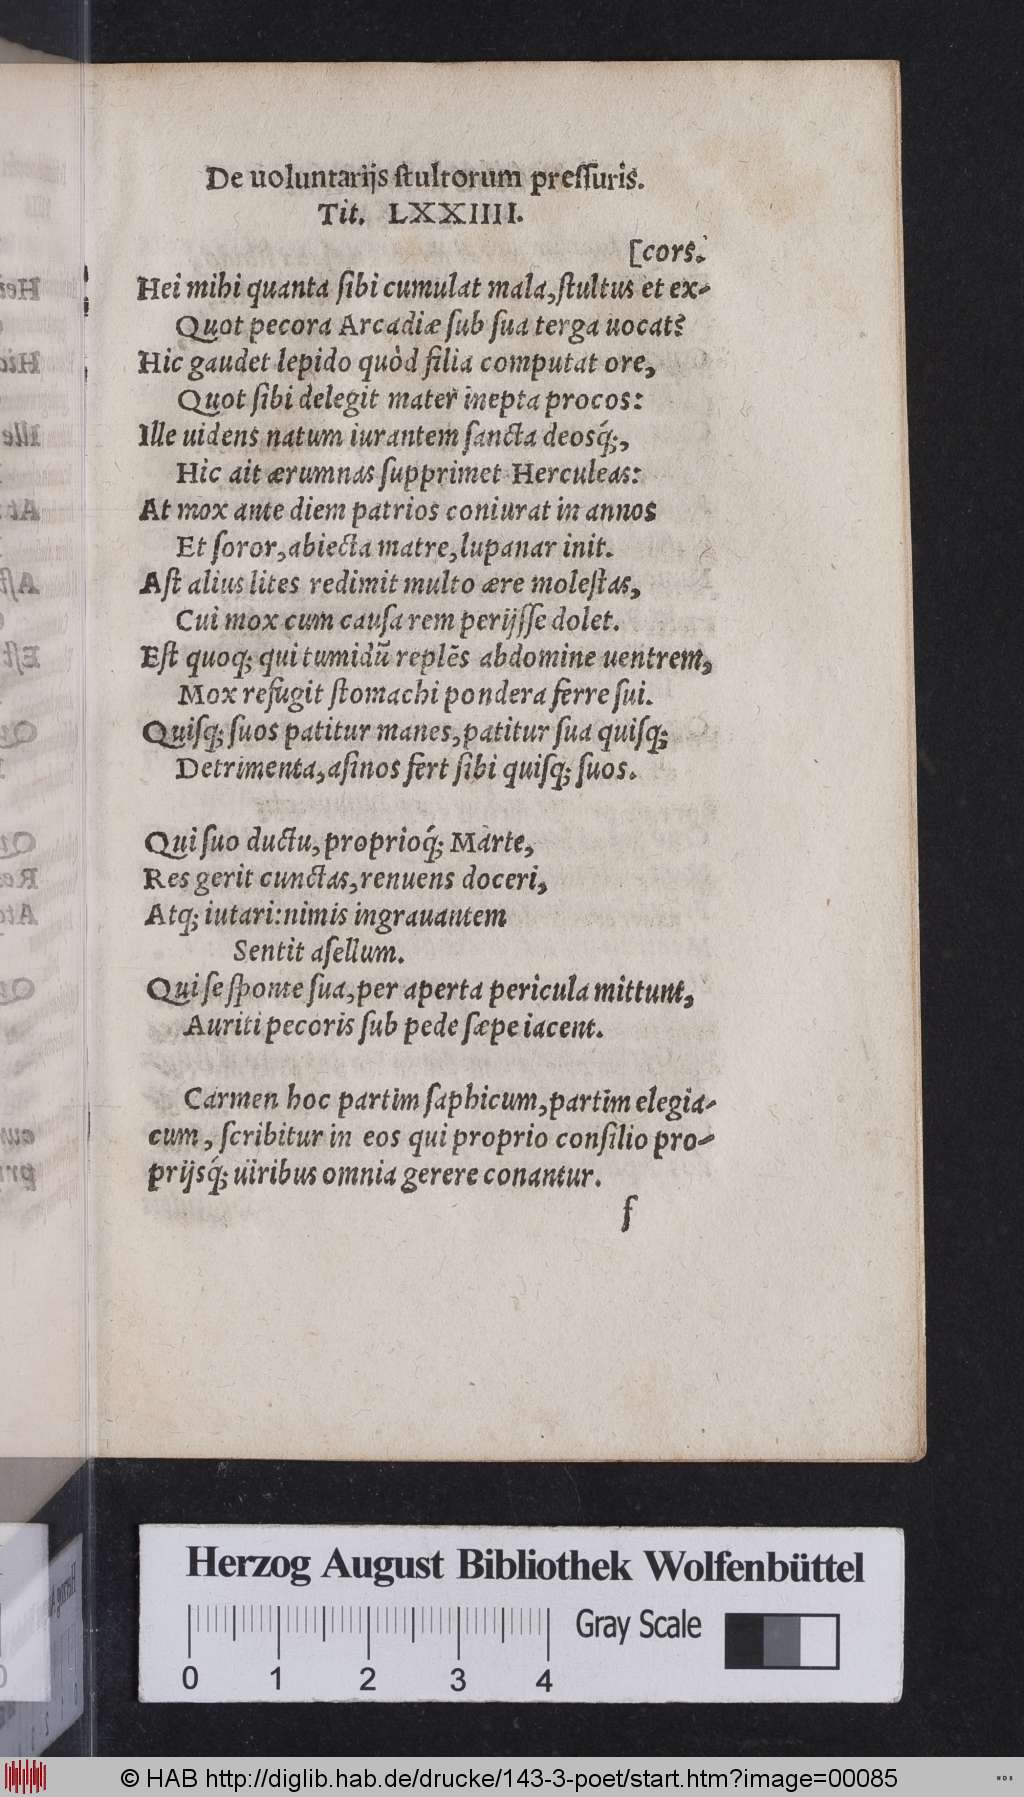 De uoluntarijs stultorum pressuris.
Tit. LXXIIII.
[cors.
Hei mihi quanta ſibi cumulat mala, ſtultus et ex-
Quot pecora Arcadiæ ſub ſua terga uocat?
Hic gaudet lepido quòd filia computat ore,
Quot ſibi delegit mater inepta procos:
Ille uidens natum iurantem ſancta deosq́;,
Hic ait ærumnas ſupprimet Herculeas:
At mox ante diem patrios coniurat in annos
Et ſoror, abiecta matre, lupanar init.
Aſt alius lites redimit multo ære moleſtas,
Cui mox cum cauſa rem perijſſe dolet.
Eſt quoq; qui tumidũ replẽs abdomine uentrem,
Mox refugit ſtomachi pondera ferre ſui.
Quiſq; ſuos patitur manes, patitur ſua quiſq;
Detrimenta, aſinos fert ſibi quiſq; ſuos.
Qui ſuo ductu, proprioq́; Marte,
Res gerit cunctas, renuens doceri,
Atq; iutari: nimis ingrauantem
Sentit aſellum.
Qui ſe ſponte ſua, per aperta pericula mittunt,
Auriti pecoris ſub pede ſæpe iacent.
Carmen hoc partim ſaphicum, partim elegia-
cum, ſcribitur in eos qui proprio conſilio pro-
prijsq́; uiribus omnia gerere conantur.
f
Herzog August Bibliothek Wolfenbüttel
Gray Scale
0 1 2 3 4
© HAB http://diglib.hab.de/drucke/143-3-poet/start.htm?image=00085